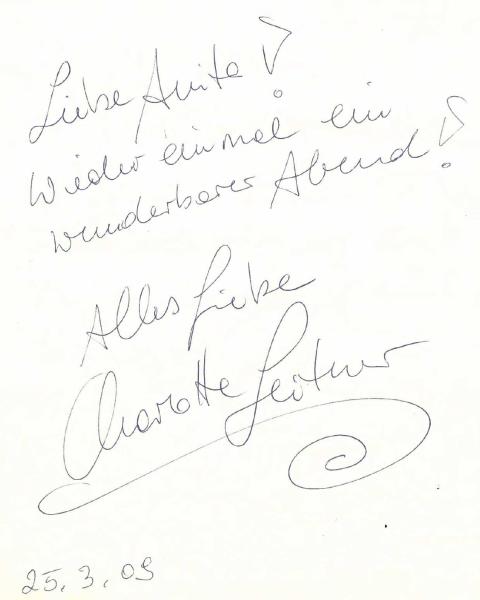 Liebe Anita!
Wieder einmal ein
wunderbarer Abend!
Alles Liebe
Charlotte Leitner
25.3.09